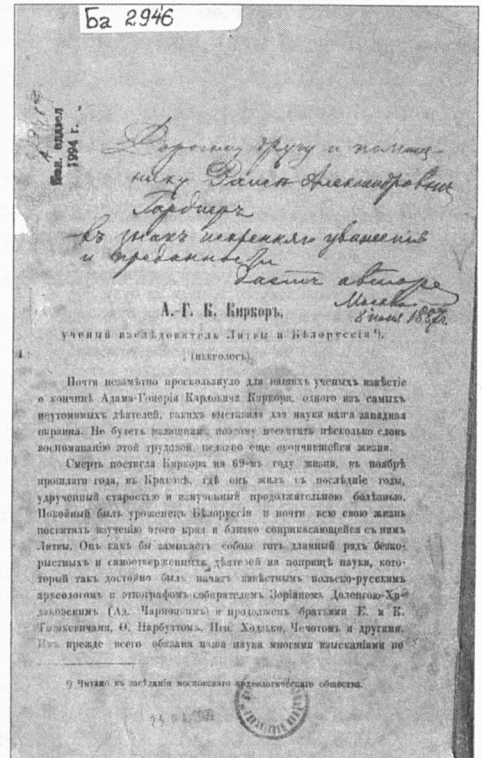 Ба 2946
Бел. отдел
1994 г.
Дорогому другу и помощ-
нику Александровичу
въ знакъ искренняго уваженія
и преданности
авторъ
Москва
1887
А.-Г. К. Киркоръ,
ученый изслѣдователь Литвы и Бѣлоруссіи ¹).
(некрологъ).
Почти незамѣтно проскользнуло для нашихъ ученыхъ извѣстіе
о кончинѣ Адама-Гонорія Карловича Киркора, одного изъ самыхъ
неутомимыхъ дѣятелей, какихъ выставила для науки наша западная
окраина. Не будетъ излишнимъ, поэтому посвятить нѣсколько словъ
воспоминанію этой трудовой, недавно еще окончившейся жизни.
Смерть постигла Киркора на 69-мъ году жизни, въ ноябрѣ
прошлаго года, въ Краковѣ, гдѣ онъ жилъ въ послѣдніе годы,
удрученный старостью и измученный продолжительною болѣзнью.
Покойный былъ уроженецъ Бѣлоруссіи и почти всю свою жизнь
посвятилъ изученію этого края и близко соприкасающейся съ нимъ
Литвы. Онъ какъ бы замыкаетъ собою тотъ длинный рядъ безко-
рыстныхъ и самоотверженныхъ дѣятелей на поприщѣ науки, кото-
торый такъ достойно былъ начатъ извѣстнымъ польско-русскимъ
археологомъ и этнографомъ-собирателемъ Зоріаномъ Доленгою-Хо-
даковскимъ (Ад. Чарноцкимъ) и продолженъ братьями Е. и К.
Тышкевичами, Ѳ. Нарбуттомъ, Игн. Ходзько, Чечотомъ и другими.
Имъ прежде всего обязана наша наука многими изысканіями по
¹) Читано въ засѣданіи московскаго археологическаго общества.